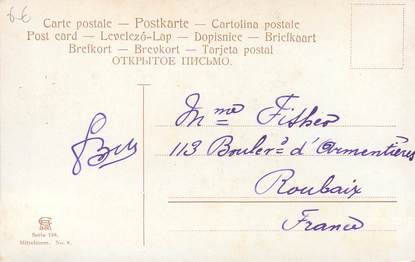 6€
Carte postale — Postkarte — Cartolina postale
Post card — Levelező-Lap — Dopisnice — Briefkaart
Brefkort — Brevkort — Tarjeta postal
ОТКРЫТОЕ ПИСЬМО.
Mme Fisher
113 Bouler d d'Armentières
Roubaix
France
Serie
No.